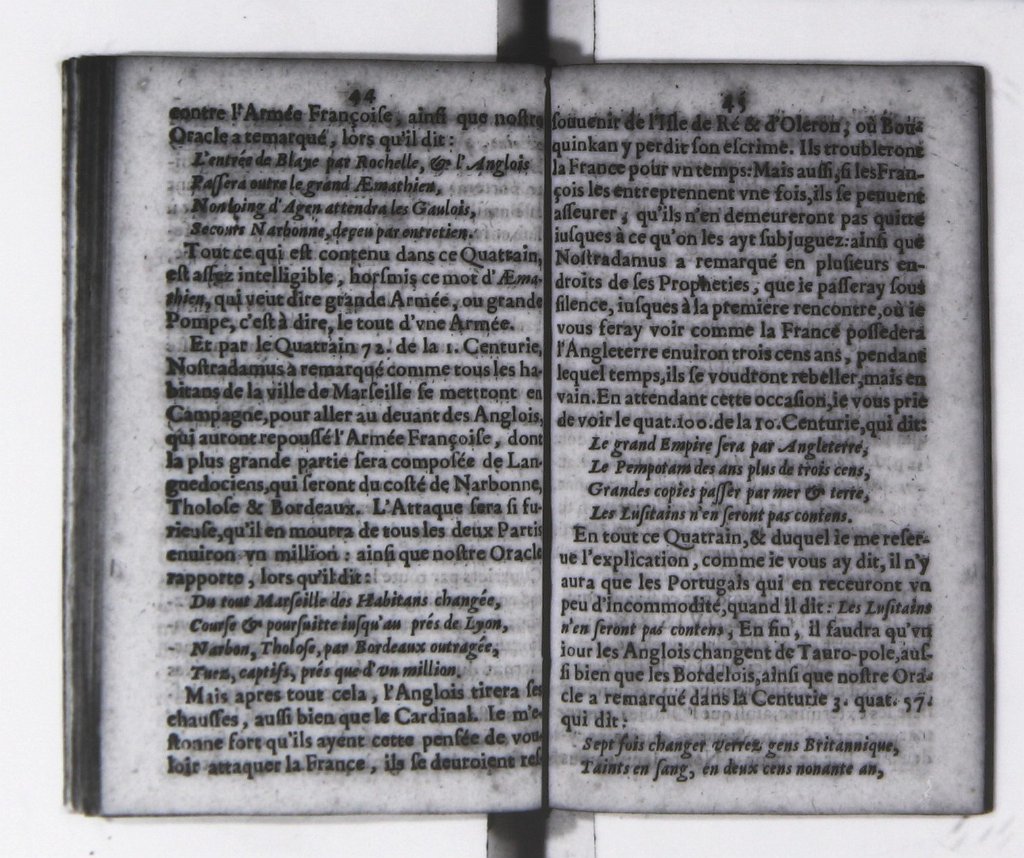 44
contre l'Armée Françoise, ainsi que nostre
Oracle a remarqué, lors qu'il dit:
L'entrée de Blaye par Rochelle, & l'Anglois
Passera outre le grand Æmathien,
Non loing d'Agen attendra les Gaulois,
Secours Narbonne, deçeu par entretien.
Tout ce qui est contenu dans ce Quatrain,
est assez intelligible, horsmis ce mot d'Æma-
thien, qui veut dire grande Armée, ou grande
Pompe, c'est à dire, le tout d'vne Armée.
Et par le Quatrain 72. de la 1. Centurie,
Nostradamus à remarqué comme tous les ha-
bitans de la ville de Marseille se mettront en
Campagne, pour aller au deuant des Anglois,
qui auront repoussé l'Armée Françoise, dont
la plus grande partie sera composée de Lan-
guedociens, qui seront du costé de Narbonne,
Tholose & Bordeaux. L'Attaque sera si fu-
rieuse, qu'il en mourra de tous les deux Partis
enuiron vn million: ainsi que nostre Oracle
rapporte, lors qu'il dit:
Du tout Marseille des Habitans changée,
Course & poursuitte iusqu'au prés de Lyon,
Narbon, Tholose, par Bordeaux outragée,
Tuez, captifs, prés que d'vn million.
Mais apres tout cela, l'Anglois tirera ses
chausses, aussi bien que le Cardinal. Ie m'e-
stonne fort qu'ils ayent cette pensée de vou-
loir attaquer la France, ils se deuroient res-
45
souuenir de l'Isle de Ré & d'Oleron, où Bou-
quinkan y perdit son escrime. Ils troubleront
la France pour vn temps: Mais aussi, si les Fran-
çois les entreprennent vne fois, ils se peuuent
asseurer, qu'ils n'en demeureront pas quitte
iusques à ce qu'on les ayt subjuguez: ainsi que
Nostradamus a remarqué en plusieurs en-
droits de ses Propheties, que ie passeray sous
silence, iusques à la premiere rencontre, où ie
vous feray voir comme la France possedera
l'Angleterre enuiron trois cens ans, pendant
lequel temps, ils se voudront rebeller, mais en
vain. En attendant cette occasion, ie vous prie
de voir le quat. 100. de la 10. Centurie, qui dit:
Le grand Empire sera par Angleterre,
Le Pempotam des ans plus de trois cens,
Grandes copies passer par mer & terre,
Les Lusitains n'en seront pas contens.
En tout ce Quatrain, & duquel ie me reser-
ue l'explication, comme ie vous ay dit, il n'y
aura que les Portugais qui en receuront vn
peu d'incommodité, quand il dit: Les Lusitains
n'en seront pas contens, En fin, il faudra qu'vn
iour les Anglois changent de Tauro-pole, aus-
si bien que les Bordelois, ainsi que nostre Ora-
cle a remarqué dans la Centurie 3. quat. 57.
qui dit:
Sept fois changer verrez gens Britannique,
Taints en sang, en deux cens nonante an,